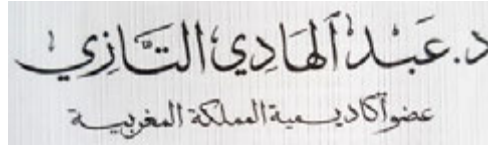 د. عَبْدُ الهَادِي التَّازِي
عضو أكاديمية المملكة المغربية